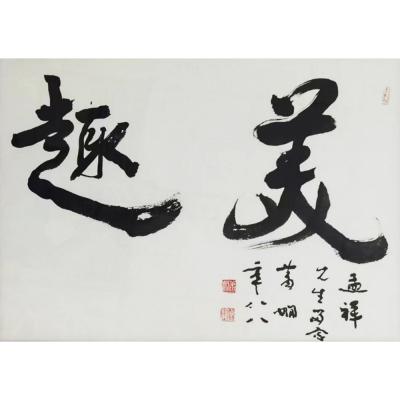 美趣
孟祥
先生留念
蕭嫻
年八八